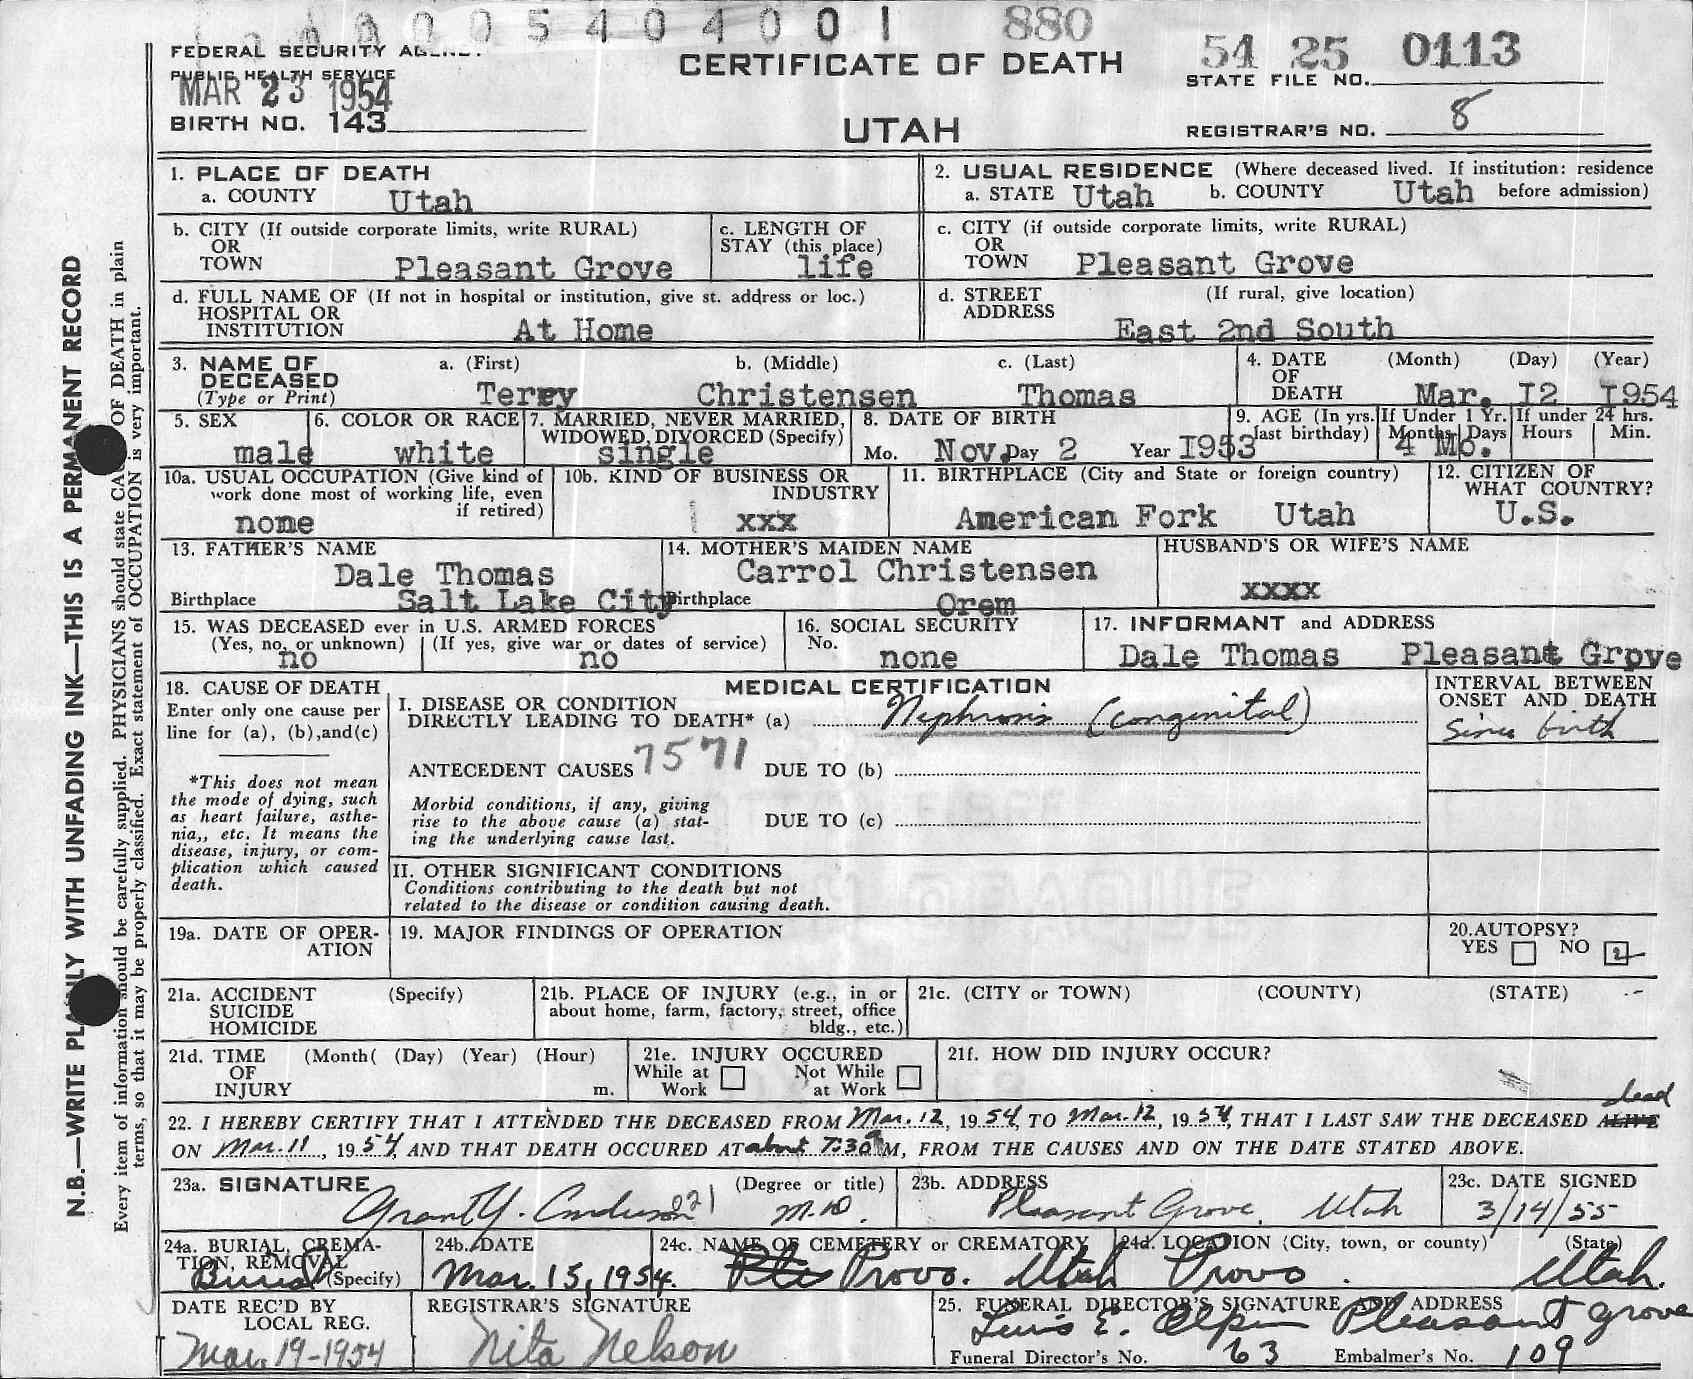 0 0 0 5 4 0 4 0 0 1 880
FEDERAL SECURITY AGENCY
PUBLIC HEALTH SERVICE
MAR 23 1954
BIRTH NO. 143
CERTIFICATE OF DEATH
UTAH
54 25 0113
STATE FILE NO.
REGISTRAR'S NO. 8
N.B.—WRITE PLAINLY WITH UNFADING INK—THIS IS A PERMANENT RECORD
Every item of information should be carefully supplied. PHYSICIANS should state CAUSE OF DEATH in plain
terms, so that it may be properly classified. Exact statement of OCCUPATION is very important.
1. PLACE OF DEATH
a. COUNTY Utah
2. USUAL RESIDENCE (Where deceased lived. If institution: residence
a. STATE Utah b. COUNTY Utah before admission)
b. CITY (If outside corporate limits, write RURAL)
OR
TOWN Pleasant Grove
c. LENGTH OF
STAY (this place)
life
c. CITY (if outside corporate limits, write RURAL)
OR
TOWN Pleasant Grove
d. FULL NAME OF (If not in hospital or institution, give st. address or loc.)
HOSPITAL OR
INSTITUTION At Home
d. STREET (If rural, give location)
ADDRESS
East 2nd South
3. NAME OF a. (First) b. (Middle) c. (Last)
DECEASED
(Type or Print) Terry Christensen Thomas
4. DATE (Month) (Day) (Year)
OF
DEATH Mar. I2 I954
5. SEX
male
6. COLOR OR RACE
white
7. MARRIED, NEVER MARRIED,
WIDOWED, DIVORCED (Specify)
single
8. DATE OF BIRTH
Mo. Nov Day 2 Year I953
9. AGE (In yrs. If Under 1 Yr. If under 24 hrs.
last birthday) Months Days Hours Min.
4 Mo.
10a. USUAL OCCUPATION (Give kind of
work done most of working life, even
if retired)
none
10b. KIND OF BUSINESS OR
INDUSTRY
xxx
11. BIRTHPLACE (City and State or foreign country)
American Fork Utah
12. CITIZEN OF
WHAT COUNTRY?
U.S.
13. FATHER'S NAME
Dale Thomas
Birthplace Salt Lake City
14. MOTHER'S MAIDEN NAME
Carrol Christensen
Birthplace Orem
HUSBAND'S OR WIFE'S NAME
xxxx
15. WAS DECEASED ever in U.S. ARMED FORCES
(Yes, no, or unknown) (If yes, give war or dates of service)
no no
16. SOCIAL SECURITY
No. none
17. INFORMANT and ADDRESS
Dale Thomas Pleasant Grove
18. CAUSE OF DEATH
Enter only one cause per
line for (a), (b),and(c)
*This does not mean
the mode of dying, such
as heart failure, asthe-
nia,, etc. It means the
disease, injury, or com-
plication which caused
death.
MEDICAL CERTIFICATION
I. DISEASE OR CONDITION
DIRECTLY LEADING TO DEATH* (a) Nephrosis (congenital)
ANTECEDENT CAUSES 7571 DUE TO (b)
Morbid conditions, if any, giving
rise to the above cause (a) stat-
ing the underlying cause last.
DUE TO (c)
INTERVAL BETWEEN
ONSET AND DEATH
Since birth
II. OTHER SIGNIFICANT CONDITIONS
Conditions contributing to the death but not
related to the disease or condition causing death.
19a. DATE OF OPER-
ATION
19. MAJOR FINDINGS OF OPERATION
20.AUTOPSY?
YES NO 2
21a. ACCIDENT (Specify)
SUICIDE
HOMICIDE
21b. PLACE OF INJURY (e.g., in or
about home, farm, factory, street, office
bldg., etc.)
21c. (CITY or TOWN) (COUNTY) (STATE)
21d. TIME (Month( (Day) (Year) (Hour)
OF
INJURY m.
21e. INJURY OCCURED
While at Not While
Work at Work
21f. HOW DID INJURY OCCUR?
dead
22. I HEREBY CERTIFY THAT I ATTENDED THE DECEASED FROM Mar. 12, 1954, TO Mar. 12, 1954, THAT I LAST SAW THE DECEASED ALIVE
ON Mar. 11, 1954, AND THAT DEATH OCCURED AT about 7:30 a M, FROM THE CAUSES AND ON THE DATE STATED ABOVE.
23a. SIGNATURE (Degree or title)
Grant Y. Anderson 221 M.D.
23b. ADDRESS
Pleasant Grove, Utah
23c. DATE SIGNED
3/14/55
24a. BURIAL, CREMA-
TION, REMOVAL
Burial (Specify)
24b. DATE
Mar. 15, 1954.
24c. NAME OF CEMETERY or CREMATORY
Provo. Utah
24d. LOCATION (City, town, or county) (State)
Provo. Utah.
DATE REC'D BY
LOCAL REG.
Mar. 19-1954
REGISTRAR'S SIGNATURE
Nita Nelson
25. FUNERAL DIRECTOR'S SIGNATURE AND ADDRESS
E. Pleasant Grove
Funeral Director's No. 63 Embalmer's No. 109